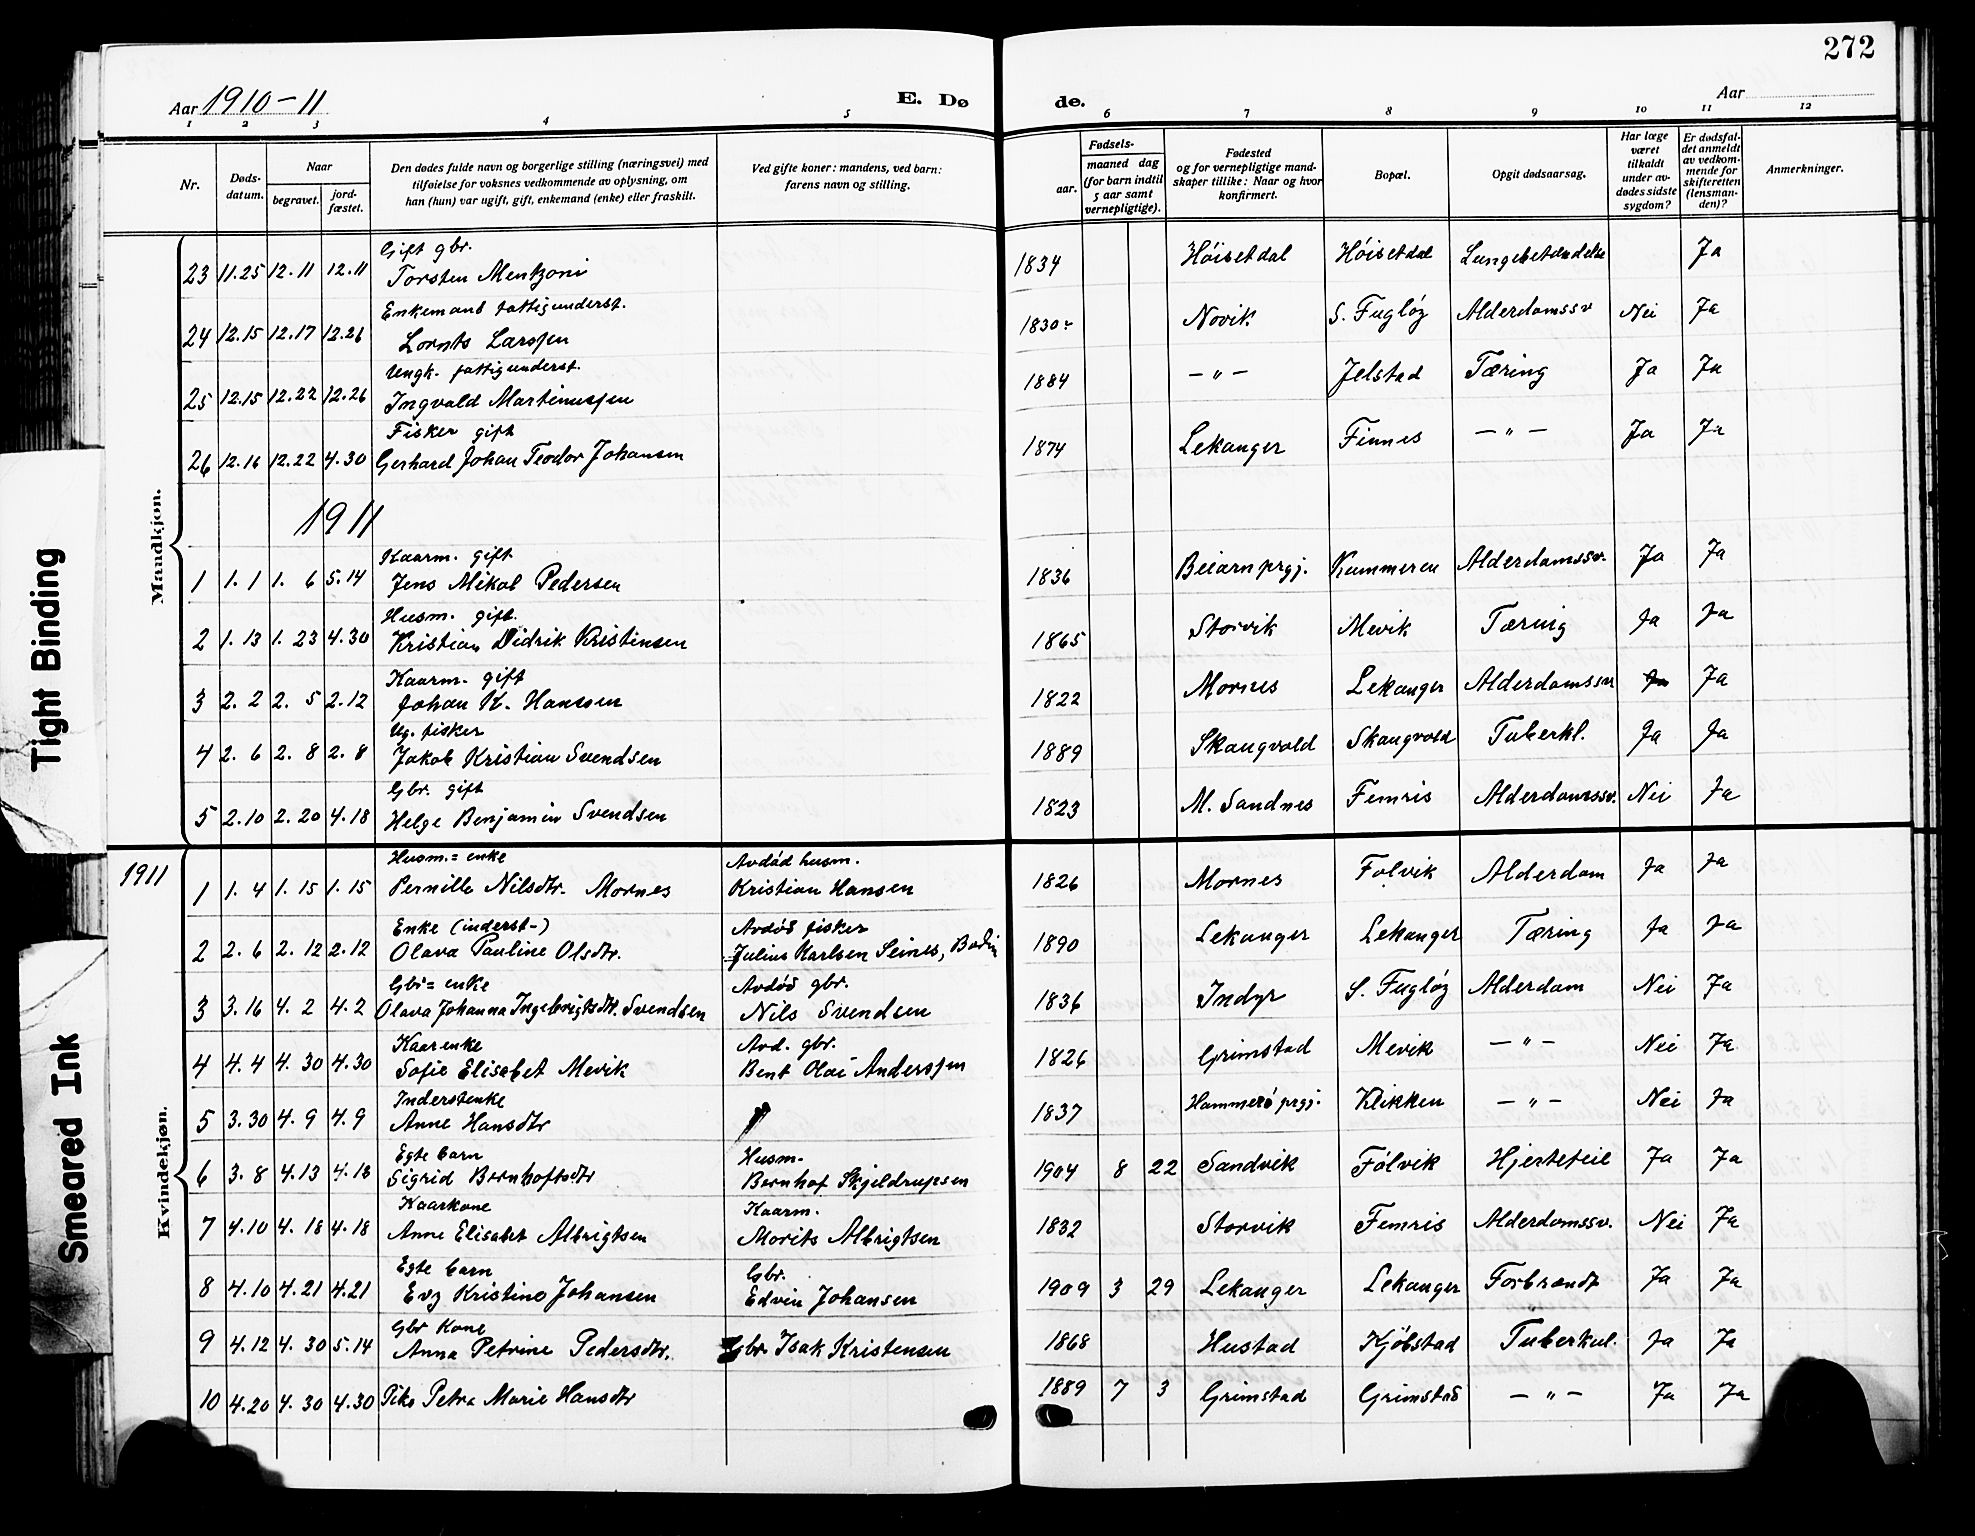 272
Aar 1910-11
E. Dø
de.
Aar
1 2 3 4 5 6 7 8 9 10 11 12
Nr.
Døds-datum.
Naar
begravet.
jord-fæstet.
Den dødes fulde navn og borgerlige stilling (næringsvei) med
tilføielse for voksnes vedkommende av oplysning, om
han (hun) var ugift, gift, enkemand (enke) eller fraskilt.
Ved gifte koner: mandens, ved barn:
farens navn og stilling.
Fødsels-
aar.
maaned dag
(for barn indtil
5 aar samt
vernepligtige).
Fødested
og for vernepligtige mand-
skaper tillike: Naar og hvor
konfirmert.
Bopæl.
Opgit dødsaarsag.
Har læge
været
tilkaldt
under av-
dødes sidste
sygdom?
Er dødsfal-
det anmeldt
av vedkom-
mende for
skifteretten
(lensman-
den)?
Anmerkninger.
Mandkjøn.
Gift gbr.
23 11.25 12.11 12.11 Torsten Mentzoni 1834 Høisetdal Høisetdal Lungebetændelse Ja
Enkemand fattigunderst.
24 12.15 12.17 12.26 Lornts Larssen 1830 Novik S. Fugløy Alderdomssv Nei Ja
Ungk. fattigunderst.
25 12.15 12.22 12.26 Ingvald Martinussen 1884 -"- Jelstad Tæring Ja Ja
Fisker gift
26 12.16 12.22 4.30 Gerhard Johan Teodor Johansen 1874 Lekanger Finnes -"- Ja Ja
1911
Kaarm. gift
1 1.1 1.6 5.14 Jens Mikal Pedersen 1836 Beiarn prgj. Kummeren Alderdomssv. Ja Ja
Husm. gift.
2 1.13 1.23 4.30 Kristian Didrik Kristensen 1865 Storvik Mevik Tæring Ja Ja
Kaarm. gift
3 2.2 2.5 2.12 Johan K. Hanssen 1822 Mornes Lekanger Alderdomssv Ja Ja
Ug. fisker
4 2.6 2.8 2.8 Jakob Kristian Svendsen 1889 Skaugvold Skaugvold Tuberkl. Ja Ja
Gbr. gift
5 2.10 2.20 4.18 Helge Benjamin Svendsen 1823 M. Sandnes Femris Alderdomssv. Nei Ja
1911
Kvindekjøn.
Husm.= enke Avdød husm.
1 1.4 1.15 1.15 Pernille Nilsdtr. Mornes Kristian Hansen 1826 Mornes Følvik Alderdom Ja Ja
Enke (inderst-) Avdød fisker
2 2.6 2.12 2.12 Olava Pauline Olsdtr. Julius Karlsen Seines, Bodin 1890 Lekanger Lekanger Tæring Ja Ja
Gbr= enke Avdød gbr.
3 3.16 4.2 4.2 Olava Johanna Ingebrigtsdtr. Svendsen Nils Svendsen 1836 Indyr S. Fugløy Alderdom Nei Ja
Kaarenke Avd. gbr.
4 4.4 4.30 4.30 Sofie Elisabet Mevik Bent Olai Anderssen 1826 Grimstad Mevik -"- Nei Ja
Inderstenke
5 3.30 4.9 4.9 Anne Hansdtr 1837 Hammerø prgj. Klikken -"- Nei Ja
Egte barn Husm.
6 3.8 4.13 4.18 Sigrid Bernhoftsdtr Bernhof Skjeldrupsen 1904 8 22 Sandvik Følvik Hjertefeil Ja Ja
Kaarkone Kaarm.
7 4.10 4.18 4.18 Anne Elisabet Albrigtsen Morits Albrigtsen 1832 Storvik Femris Alderdomssv. Nei Ja
Egte barn Gbr.
8 4.10 4.21 4.21 Evy Kristine Johansen Edvin Johansen 1909 3 29 Lekanger Lekanger Forbrændt Ja Ja
Gbr Kone
9 4.12 4.30 5.14 Anna Petrine Pedersdtr. Gbr Isak Kristensen 1868 Hustad Kjøbstad Tuberkul. Ja Ja
10 4.20 4.30 4.30 Pike Petra Marie Hansdtr 1889 7 3 Grimstad Grimstad -"- Ja Ja
Tight Binding
Smeared Ink